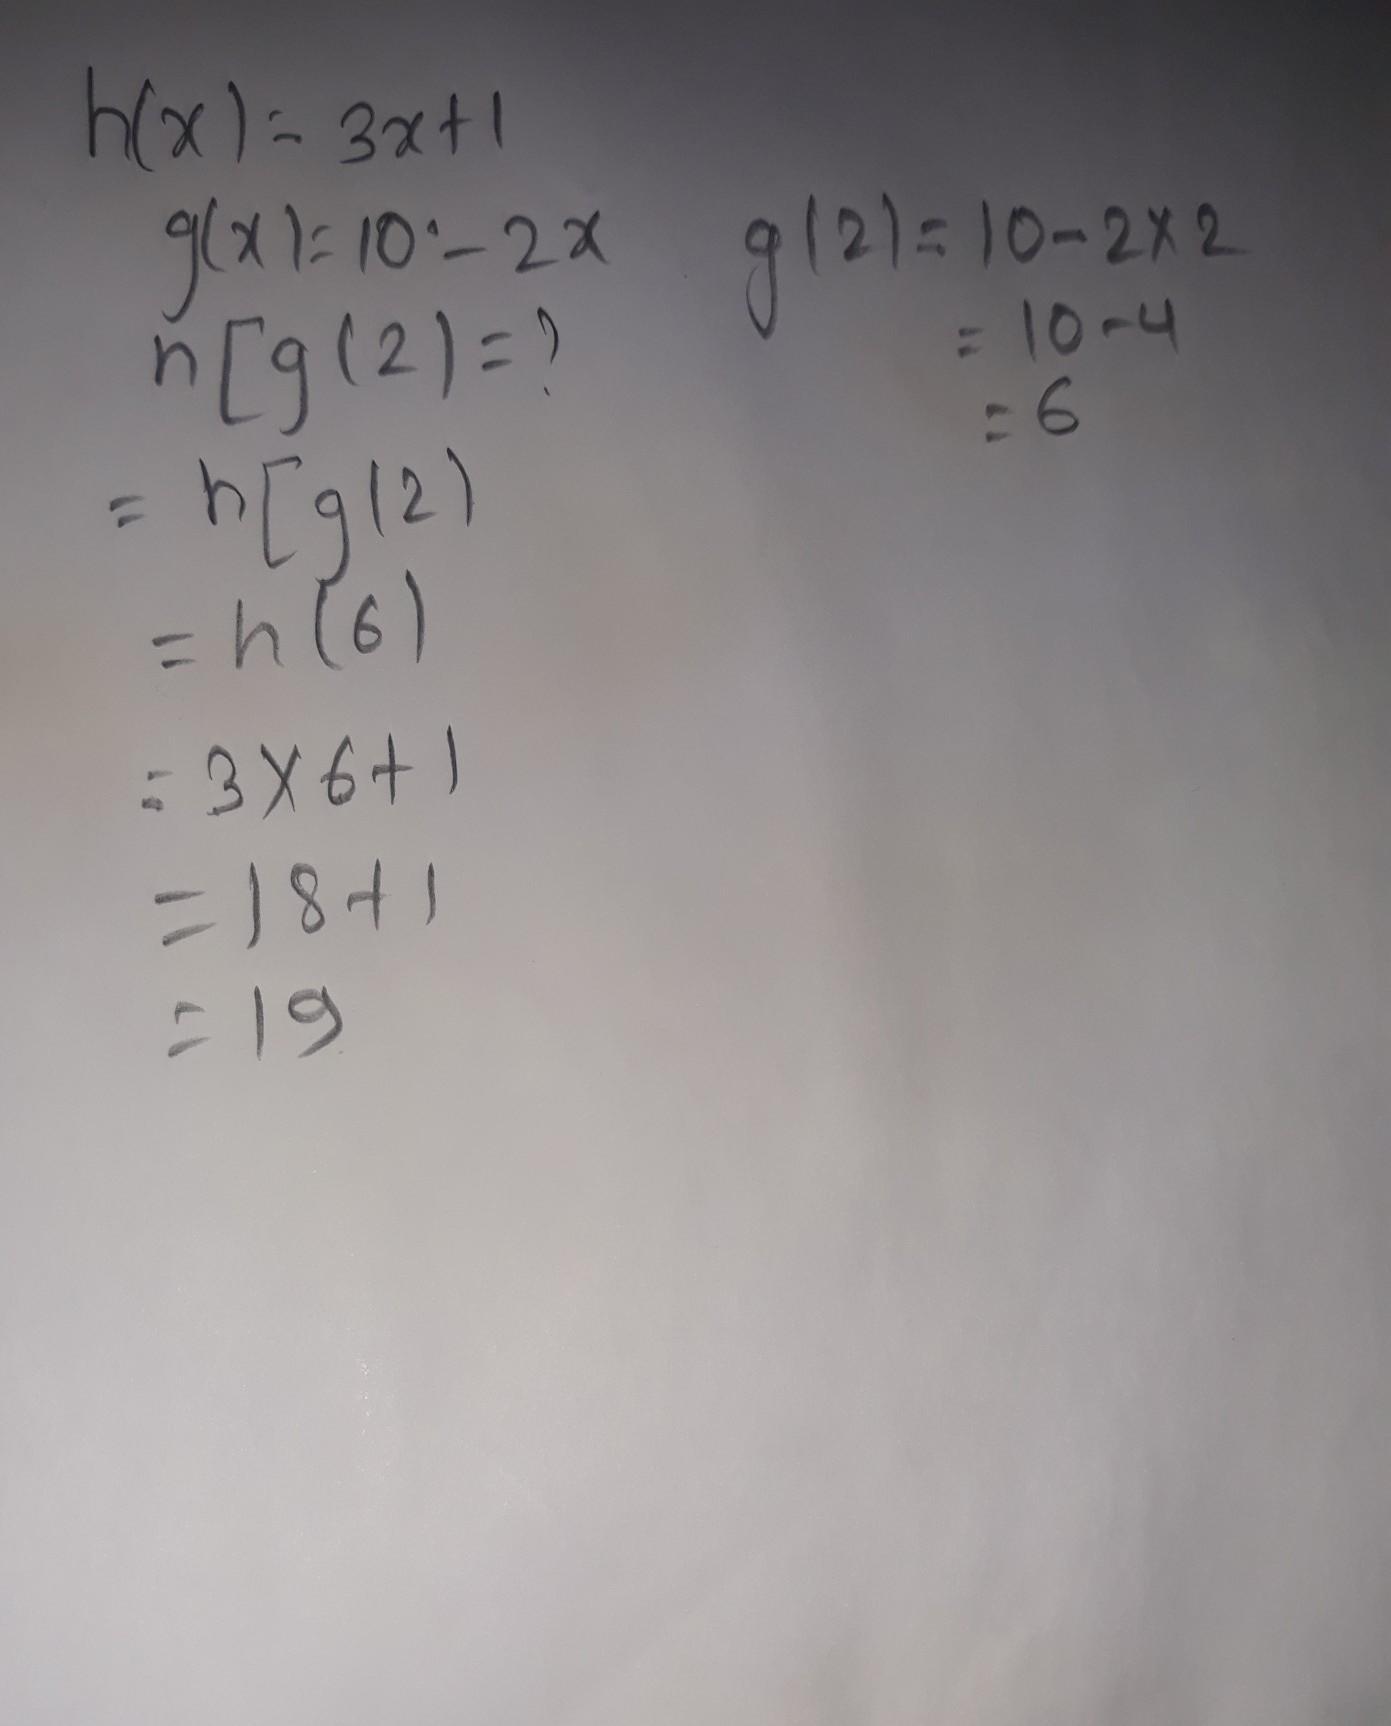 h(x) = 3x+1
g(x) = 10 - 2x
h[g(2) = ?
= h[g(2)
= h(6)
= 3×6+1
= 18+1
= 19
g(2) = 10-2×2
= 10-4
= 6